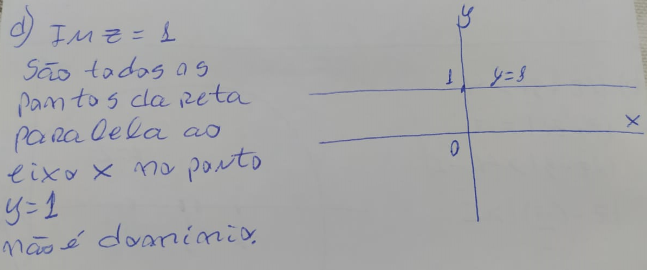 d) Im z = 1
São todos os
pontos da reta
paralela ao
eixo x no ponto
y=1
não é domínio.
y
1 y=1
x
0